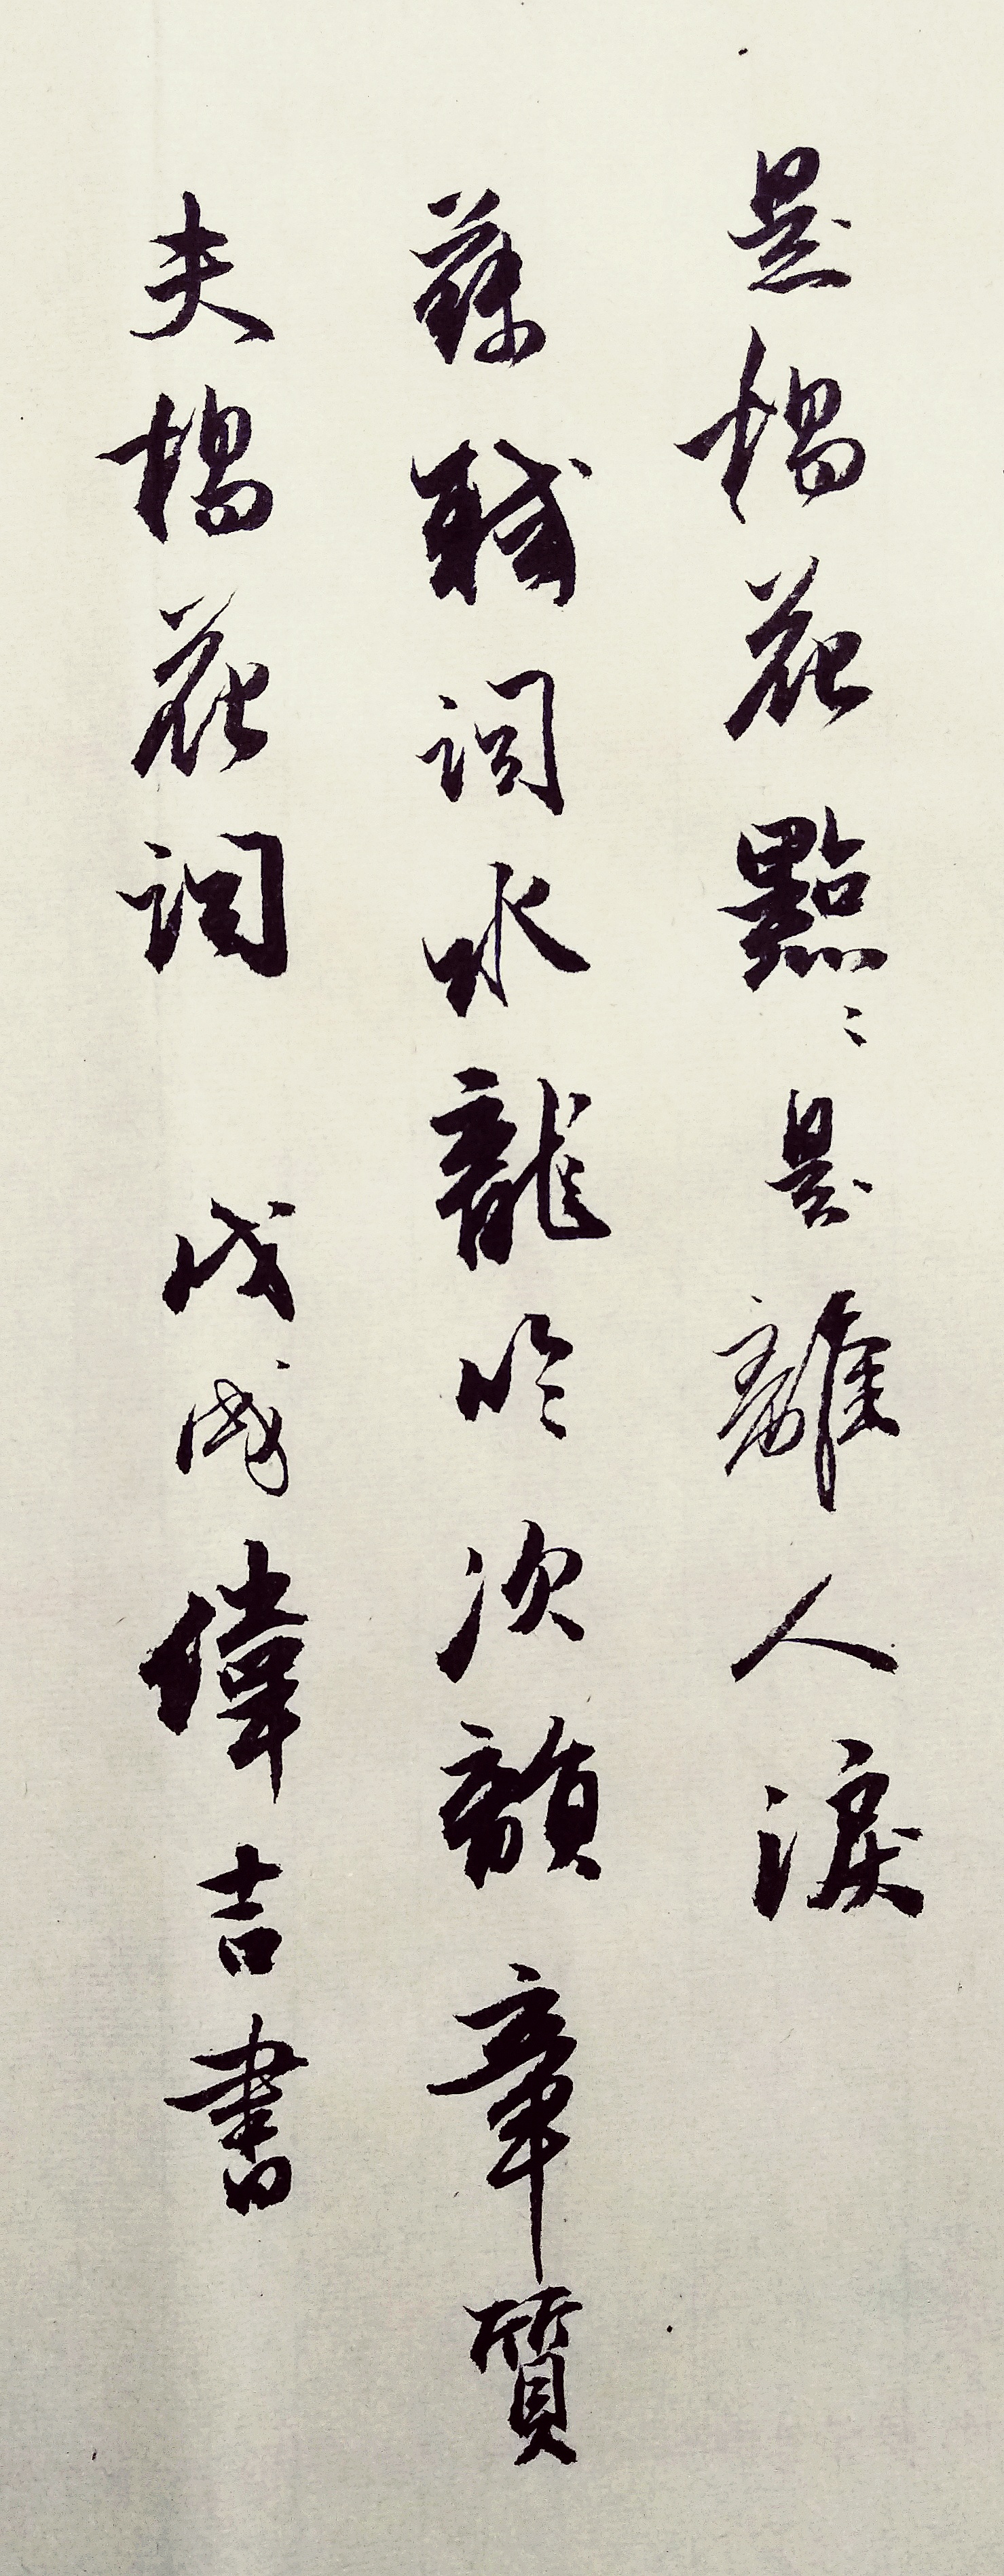 是楊花點〻是離人淚
蘇軾詞水龍吟次韻章質
夫楊花詞 戊戌偉吉書